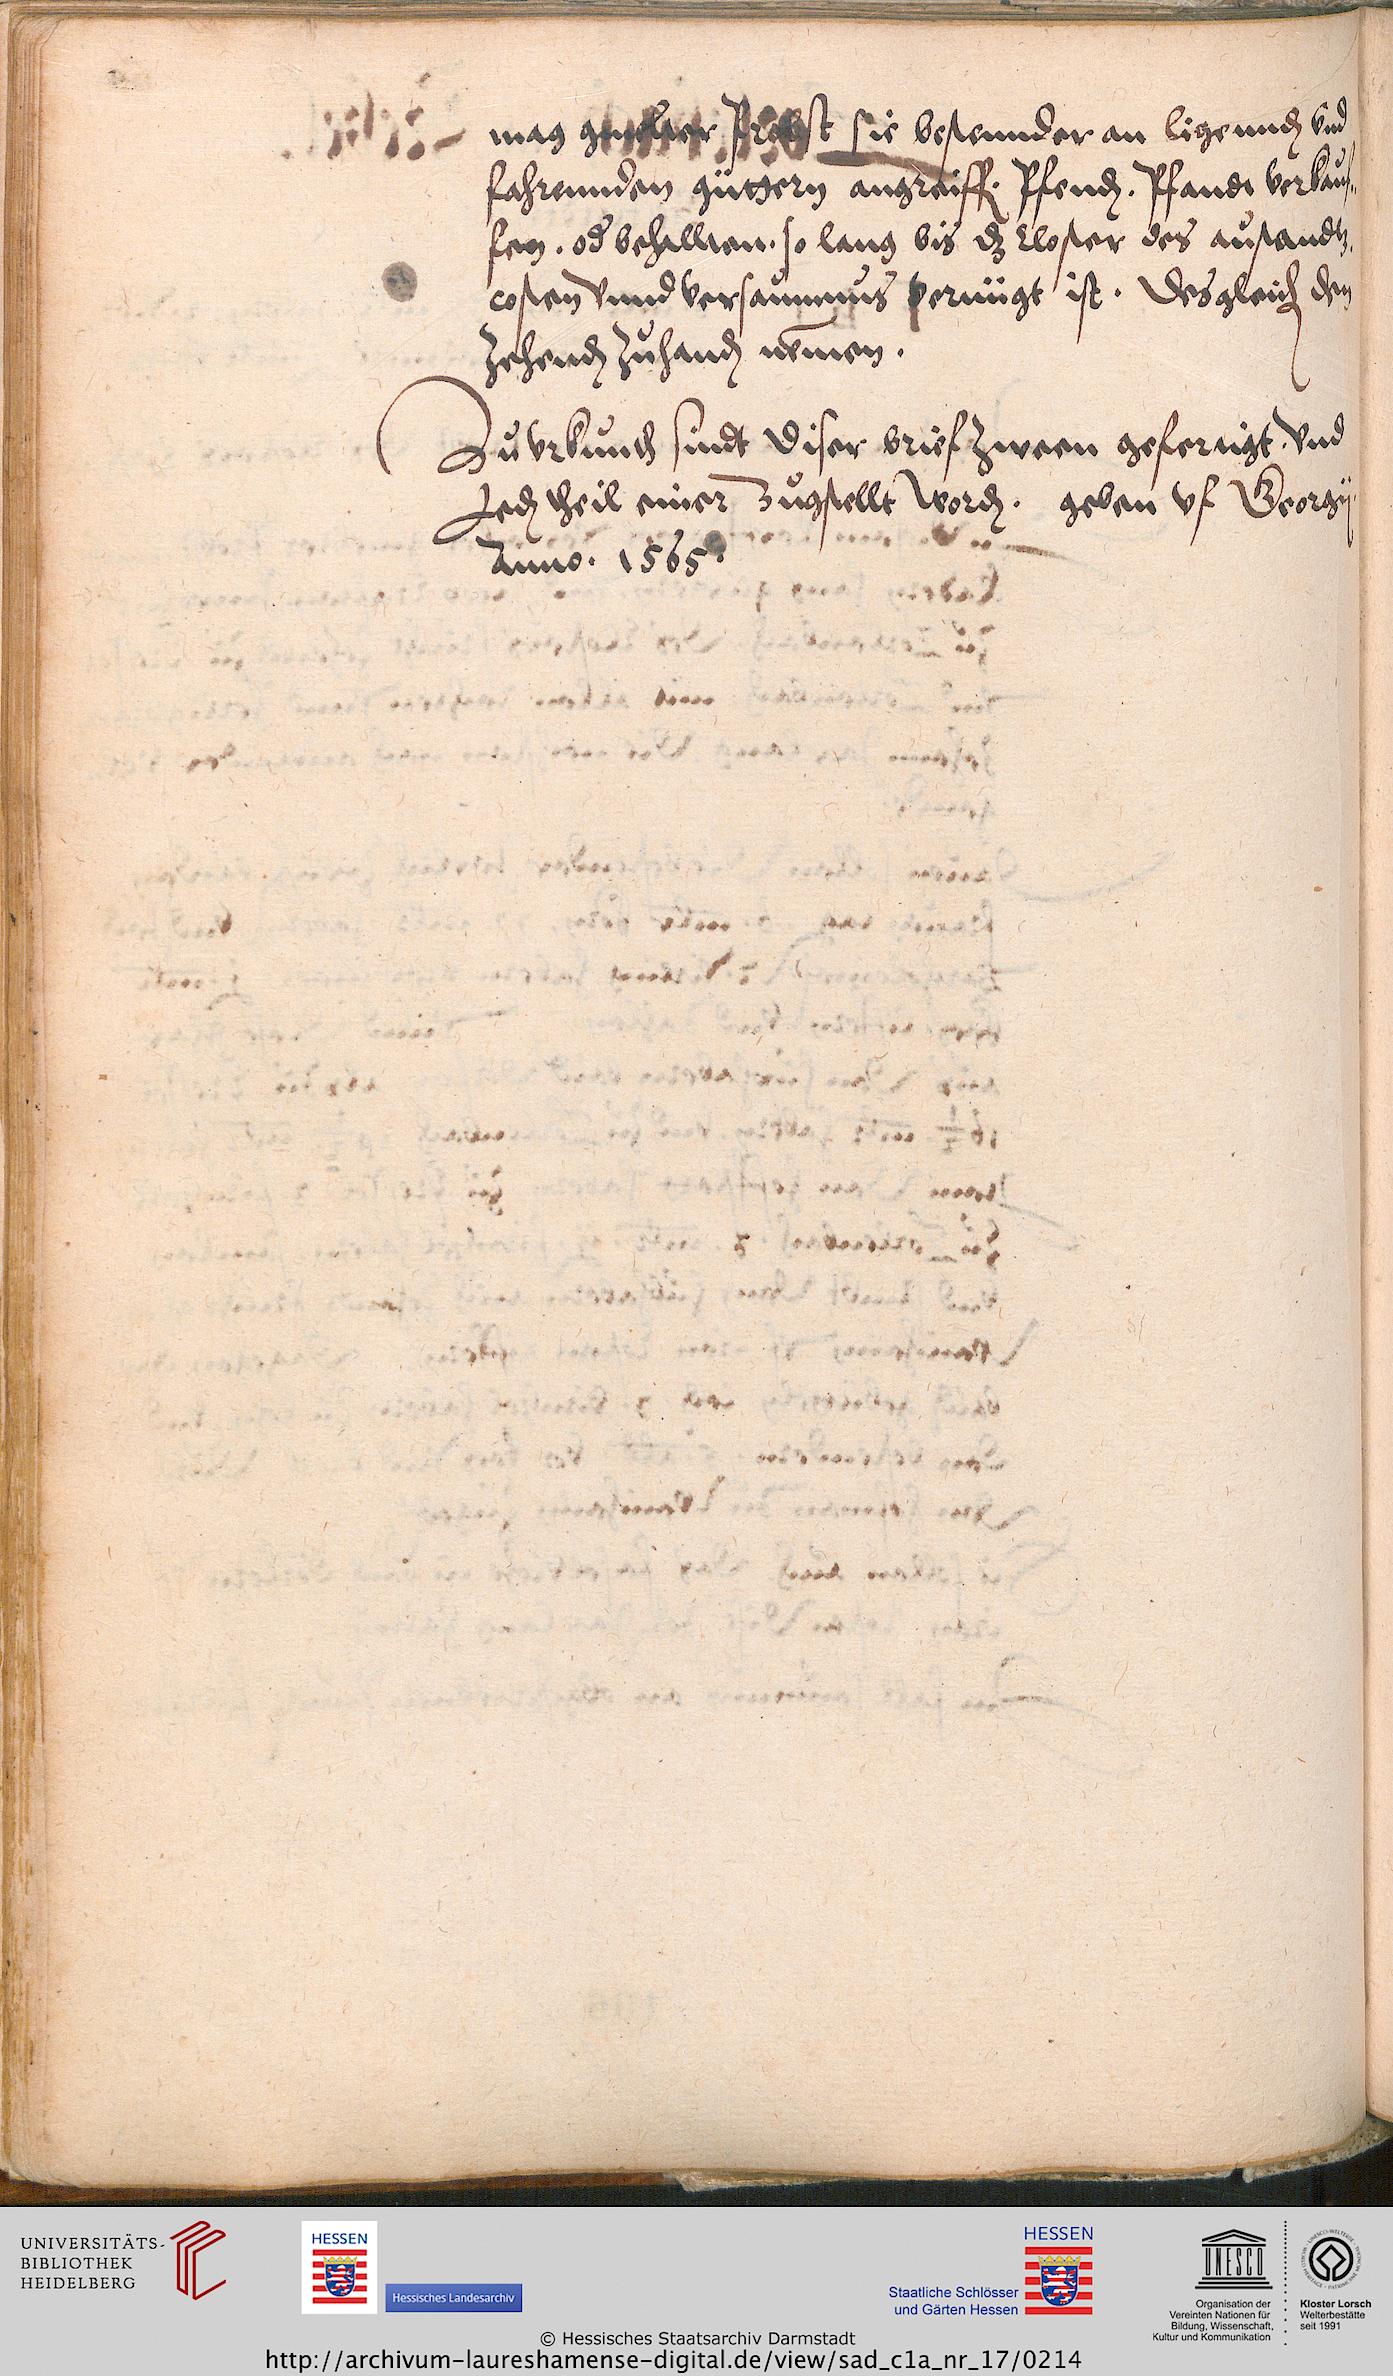 mag gmelter Probst sie bestennder an ligennd vnd
fahrennden güttern angreiff. Pfend. Pfandt verkauf-
fen. od behallten. so lang bis dz Closter des austandts,
costen vnnd versaumnus vernügt ist. Desgleich den
Zehend Zuhand nemen.
Zu vrkunth sindt diser brief Zween gefertigt. vnd
Jed theil einer Zugstellt word. geben vf Georgij
Anno. 1565.
UNIVERSITÄTS-
BIBLIOTHEK
HEIDELBERG
HESSEN
Hessisches Landesarchiv
HESSEN
Staatliche Schlösser
und Gärten Hessen
UNESCO
Organisation der
Vereinten Nationen für
Bildung, Wissenschaft,
Kultur und Kommunikation
Kloster Lorsch
Welterbestätte
seit 1991
© Hessisches Staatsarchiv Darmstadt
http://archivum-laureshamense-digital.de/view/sad_c1a_nr_17/0214